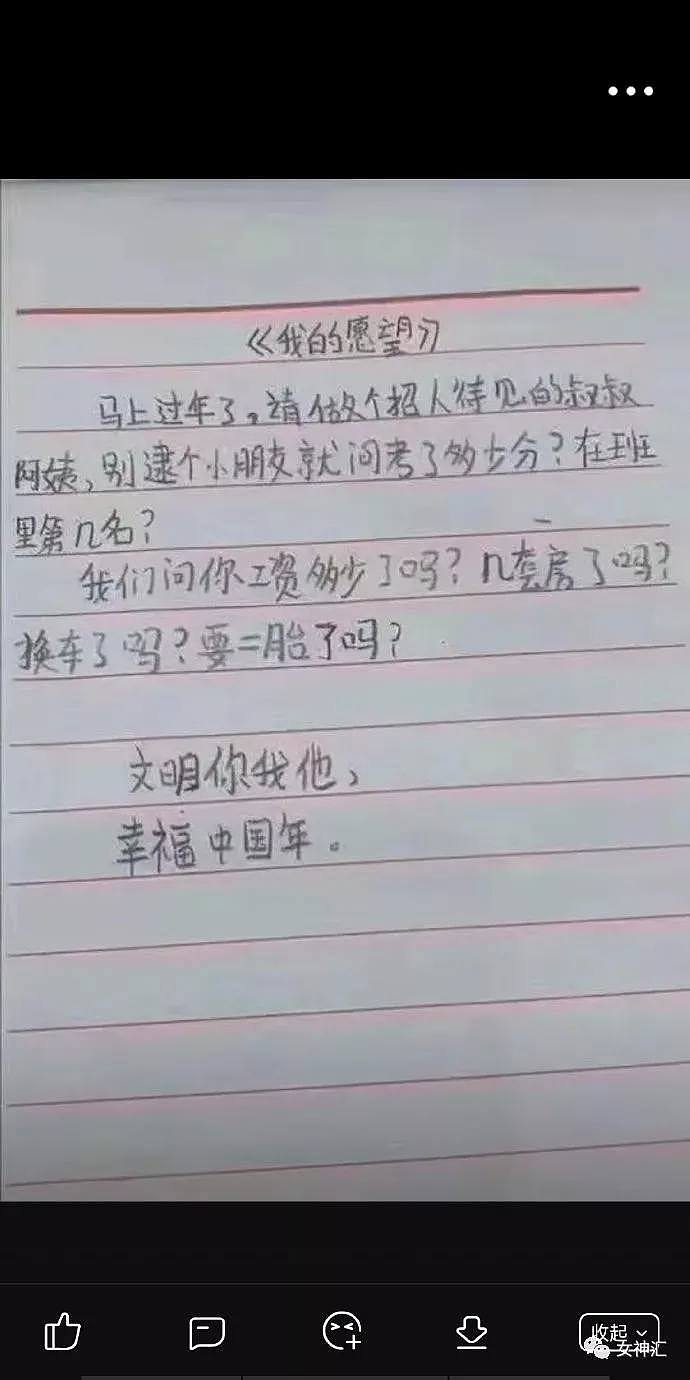 《我的愿望》
马上过年了，请做个招人待见的叔叔
阿姨，别逮个小朋友就问考了多少分？在班
里第几名？
我们问你工资多少了吗？几套房了吗？
换车了吗？要二胎了吗？
文明你我他，
幸福中国年。
收起
女神汇